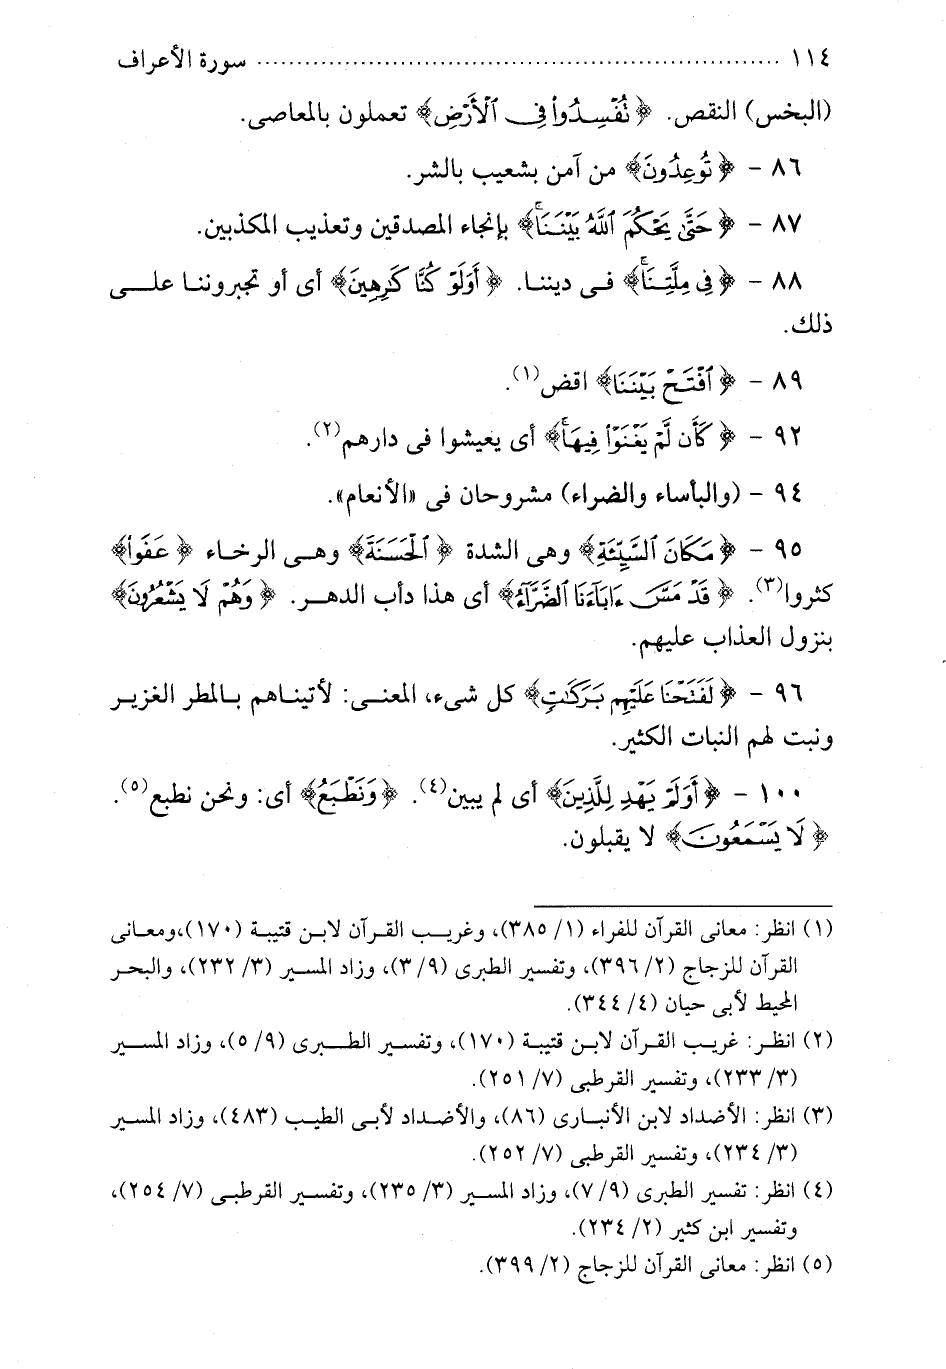 ١١٤ ........................................................ سورة الأعراف
(البخس) النقص. ﴿نُفْسِدُوا۟ فِى ٱلْأَرْضِ﴾ تعملون بالمعاصى.
٨٦ - ﴿تُوعِدُونَ﴾ من آمن بشعيب بالشر.
٨٧ - ﴿حَتَّىٰ يَحْكُمَ ٱللَّهُ بَيْنَنَا﴾ بإنجاء المصدقين وتعذيب المكذبين.
٨٨ - ﴿فِى مِلَّتِنَا﴾ فى ديننا. ﴿أَوَلَوْ كُنَّا كَـٰرِهِينَ﴾ أى أو تجبروننا على
ذلك.
٨٩ - ﴿ٱفْتَحْ بَيْنَنَا﴾ اقض(١).
٩٢ - ﴿كَأَن لَّمْ يَغْنَوْا۟ فِيهَا﴾ أى يعيشوا فى دارهم(٢).
٩٤ - (والبأساء والضراء) مشروحان فى «الأنعام».
٩٥ - ﴿مَكَانَ ٱلسَّيِّئَةِ﴾ وهى الشدة ﴿ٱلْحَسَنَةَ﴾ وهى الرخاء ﴿عَفَوا۟﴾
كثروا(٣). ﴿قَدْ مَسَّ ءَابَآءَنَا ٱلضَّرَّآءُ﴾ أى هذا دأب الدهر. ﴿وَهُمْ لَا يَشْعُرُونَ﴾
بنزول العذاب عليهم.
٩٦ - ﴿لَفَتَحْنَا عَلَيْهِم بَرَكَـٰتٍ﴾ كل شىء، المعنى: لأتيناهم بالمطر الغزير
ونبت لهم النبات الكثير.
١٠٠ - ﴿أَوَلَمْ يَهْدِ لِلَّذِينَ﴾ أى لم يبين(٤). ﴿وَنَطْبَعُ﴾ أى: ونحن نطبع(٥).
﴿لَا يَسْمَعُونَ﴾ لا يقبلون.
(١) انظر: معانى القرآن للفراء (١/ ٣٨٥)، وغريب القرآن لابن قتيبة (١٧٠)،ومعانى
القرآن للزجاج (٢/ ٣٩٦)، وتفسير الطبرى (٩/ ٣)، وزاد المسير (٣/ ٢٣٢)، والبحر
المحيط لأبى حيان (٤/ ٣٤٤).
(٢) انظر: غريب القرآن لابن قتيبة (١٧٠)، وتفسير الطبرى (٩/ ٥)، وزاد المسير
(٣/ ٢٣٣)، وتفسير القرطبى (٧/ ٢٥١).
(٣) انظر: الأضداد لابن الأنبارى (٨٦)، والأضداد لأبى الطيب (٤٨٣)، وزاد المسير
(٣/ ٢٣٤)، وتفسير القرطبى (٧/ ٢٥٢).
(٤) انظر: تفسير الطبرى (٩/ ٧)، وزاد المسير (٣/ ٢٣٥)، وتفسير القرطبى (٧/ ٢٥٤)،
وتفسير ابن كثير (٢/ ٢٣٤).
(٥) انظر: معانى القرآن للزجاج (٢/ ٣٩٩).